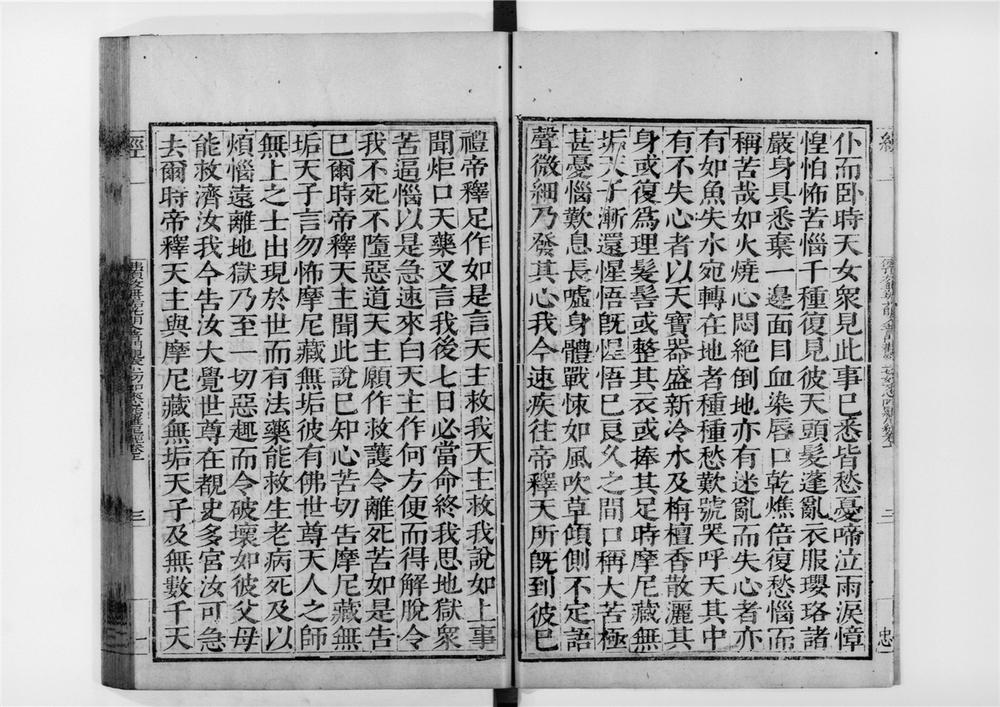 仆而卧時天女衆見此事已悉皆愁憂啼泣雨淚慞
惶怕怖苦惱千種復見彼天頭髮蓬亂衣服瓔珞諸
嚴身具悉棄一邊面目血染唇口乾燋倍復愁惱而
稱苦哉如火燒心悶絕倒地亦有迷亂而失心者亦
有如魚失水宛轉在地者種種愁歎號哭呼天其中
有不失心者以天寶器盛新冷水及栴檀香散灑其
身或復爲理髮髻或整其衣或捧其足時摩尼藏無
垢天子漸還惺悟旣惺悟已良久之間口稱大苦極
甚憂惱歎息長噓身體戰悚如風吹草傾側不定語
聲微細乃發其心我今速疾往帝釋天所旣到彼已
禮帝釋足作如是言天主救我天主救我說如上事
聞炬口天藥叉言我後七日必當命終我思地獄衆
苦逼惱以是急速來白天主作何方便而得解脫令
我不死不墮惡道天主願作救護令離死苦如是告
已爾時帝釋天主聞此說已知心苦切告摩尼藏無
垢天子言勿怖摩尼藏無垢彼有佛世尊天人之師
無上之士出現於世而有法藥能救生老病死及以
煩惱遠離地獄乃至一切惡趣而令破壞如彼父母
能救濟汝我今告汝大覺世尊在覩史多宮汝可急
去爾時帝釋天主與摩尼藏無垢天子及無數千天
經
三
一
三
忠